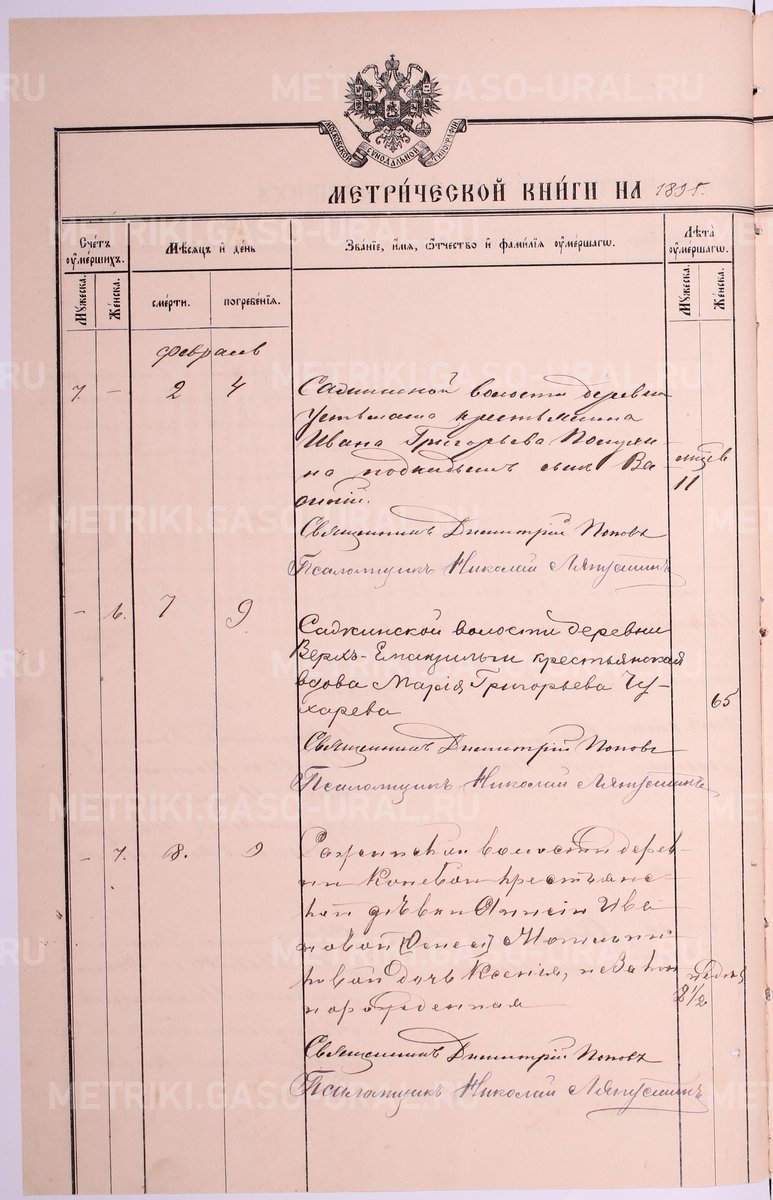 МОСКОВСКОЙ СУНОДАЛЬНОЙ ТИПОГРАФИИ
МЕТРИ́ЧЕСКОЙ КНИ́ГИ НА 1895.
Счётъ ᲂу҆ме́ршихъ.
Мѣ́сяцъ и҆ де́нь
Зва́нїе, и҆́мѧ, ѻ҆́тчество и҆ фами́лїѧ ᲂу҆ме́ршагѡ.
Лѣ́та ᲂу҆ме́ршагѡ.
Мꙋ́жеска.
Же́нска.
сме́рти.
погребе́нїѧ.
Мꙋ́жеска.
Же́нска.
февраль
7. – 2 4 Садкинской волости деревни
крестьянина
Ивана Григорьева
на подкидышъ сынъ Ва-
силій.
11
Священникъ Димитрій Поповъ
Псаломщикъ Николай Ляпустинъ
– 6. 7 9. Садкинской волости деревни
Верхъ-Еманзильги крестьянская
вдова Марія Григорьева Чу-
харева
65
Священникъ Димитрій Поповъ
Псаломщикъ Николай Ляпустинъ
– 7. 8. 9 волости дерев-
ни Коневой крестьянс-
кой дѣвки Анисіи Ива-
новой
ковой дочь Ксенія, незакон-
норожденная
недѣль
2½
Священникъ Димитрій Поповъ
Псаломщикъ Николай Ляпустинъ
METRIKI.GASO-URAL.RU